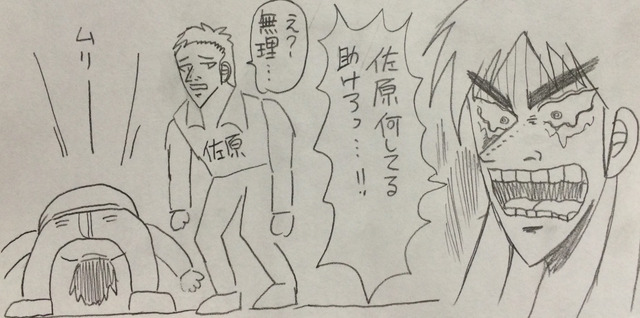 佐原何してる
助けろっ…!!
え?ー
無理…
佐原
ムリー